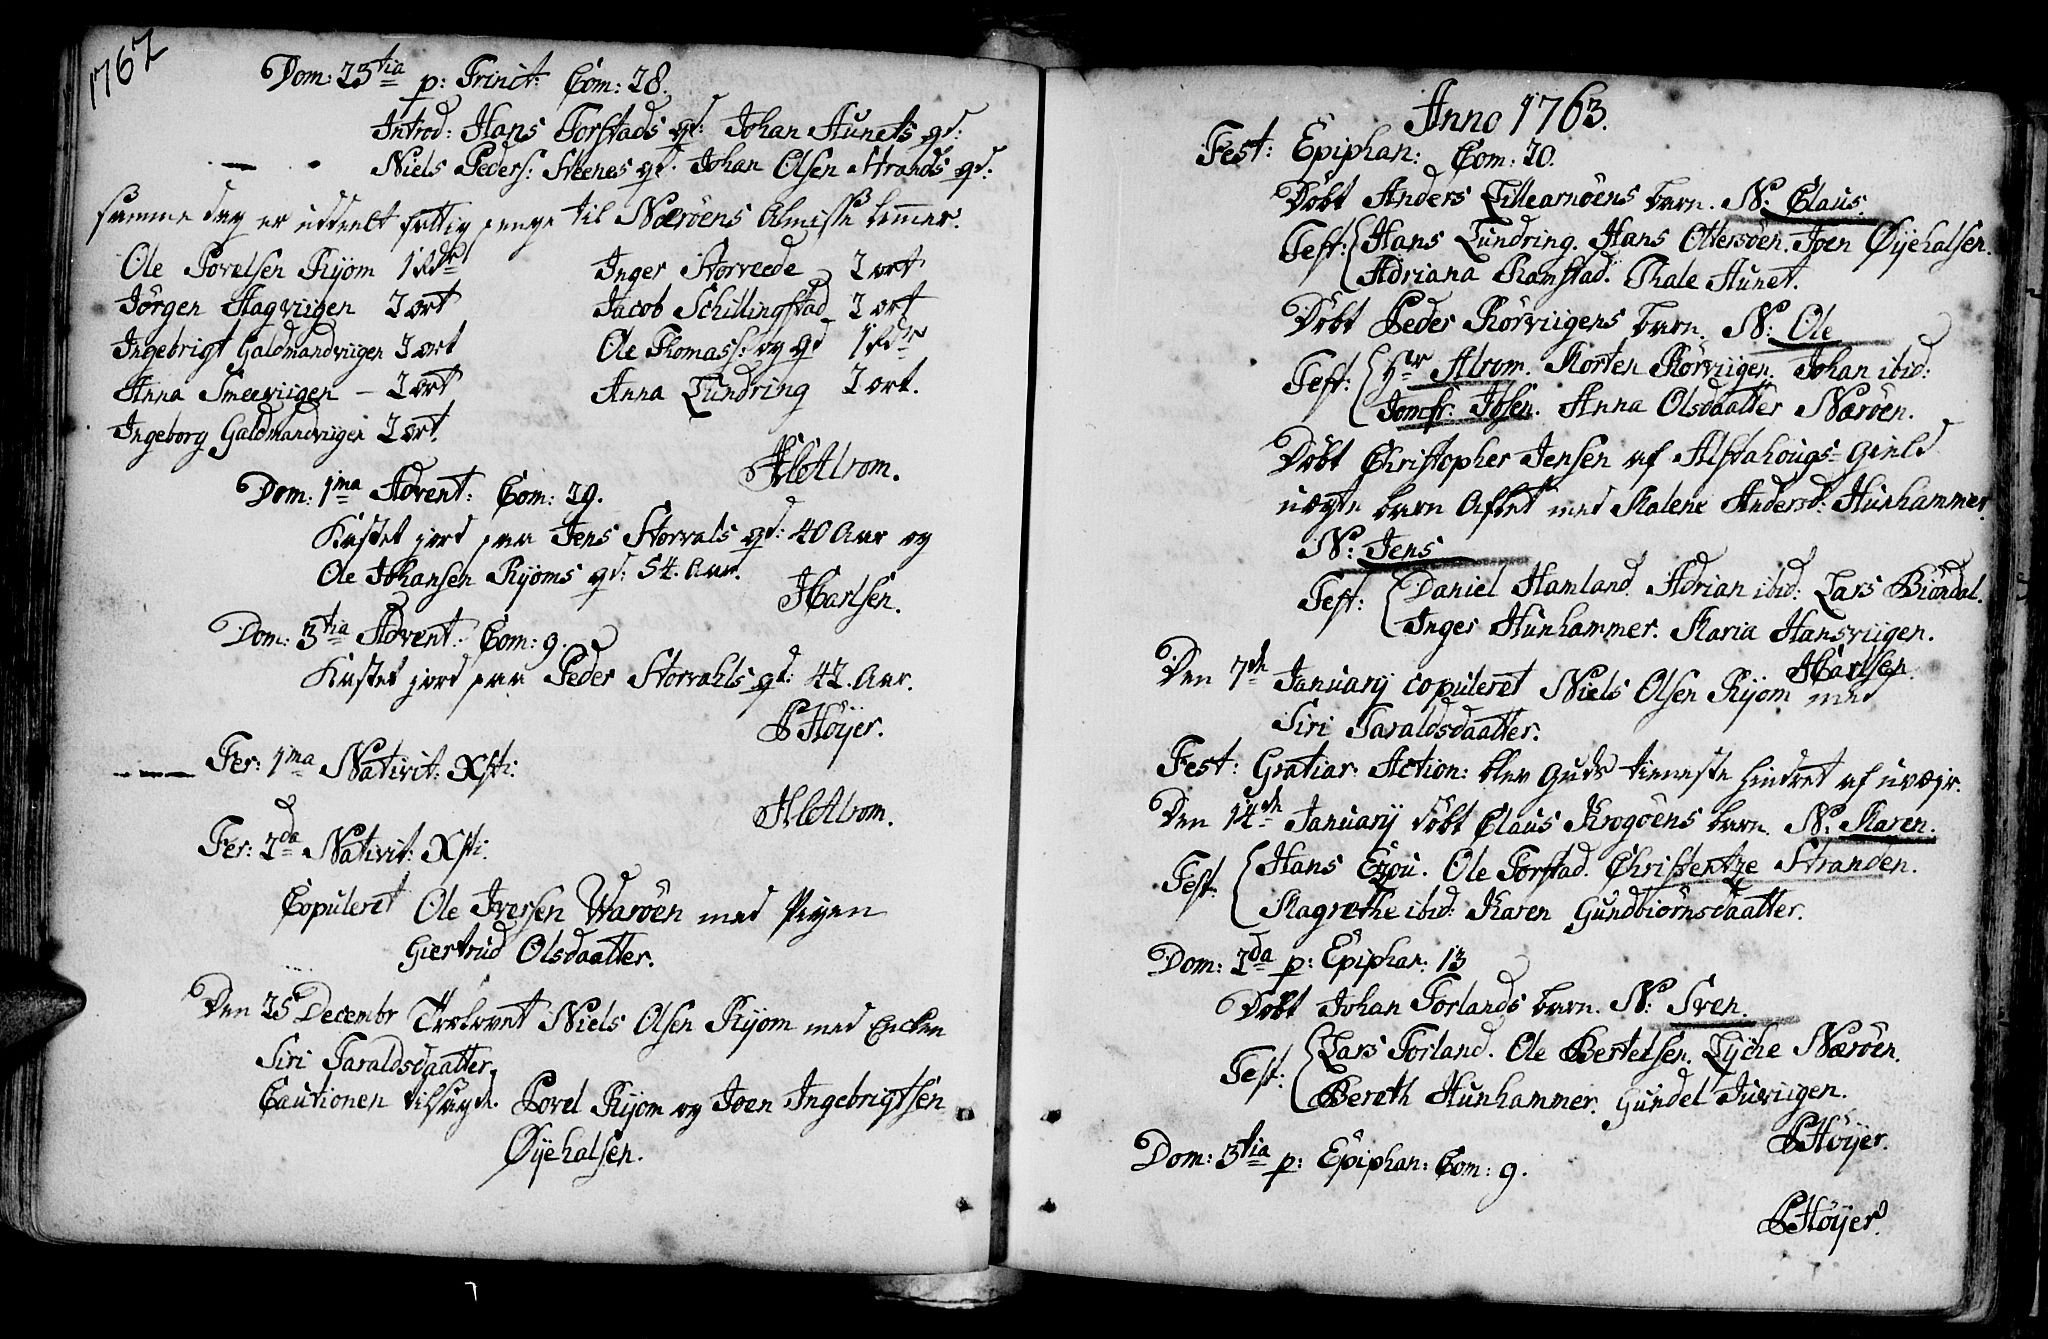 1762
Dom: 23tia p: Trinit: Com: 28.
Introd: Hans Torstads qd: Johan Aunets qd:
Niels Peders: Steenes qd. Johan Olsen Strands qd:
samme dag er uddeelt fattig penge til Nærøens Almisse lemer.
Ole Povelsen Ryøm 1 Rdr Inger Storveede 2 ort
Jørgen Hagviigen 2 ort Jacob Schillingstad 2 ort
Ingebrigt Galdmandviigen 3 ort Ole Thomass: og qd 1 Rdr
Anna Sneeviigen - 2 ort Anna Lundring 2 ort.
Ingeborg Galdmandviigen 2 ort.
Alstrom.
Dom: 1ma Advent: Com: 29.
Kastet jord paa Jens Storvals qd: 40 Aar og
Ole Johansen Ryøms qd: 54. Aar.
HCarlsen.
Dom: 3tia Advent: Com: 9.
Kastet jord paa Peder Storvahls qd: 42. Aar.
PHøyer.
Fer: 1ma Nativit: Xsti:
Alstrom.
Fer: 2da Nativit: Xsti:
Copuleret Ole Iversen Warøen med Pigen
Giertrud Olsdaatter.
Den 25 Decembr Trolovet Niels Olsen Ryom med Enken
Siri Taraldsdaatter
Cautionen tilsagde Povel Ryom og Joen Ingebrigtsen
Øyehalsen.
Anno 1763.
Fest: Epiphan: Com: 20.
Døbt Anders Lillearnøens barn. N: Claus.
Test: Hans Lundring. Hans Ottersøen. Joen Øyehalsen.
Adriana Ramstad. Thale Aunet.
Døbt Peder Rørviigens barn. N: Ole
Test: Hr Alrom. Morten Rørviigen. Johan ibid:
Jomfr. Ibsen. Anna Olsdaatter Nærøen.
Døbt Christopher Jensen af Alstahougs-Gield
uægte barn Aflet med Malene Andersd: Hunhammer.
N: Jens
Test: Daniel Hamland. Adrian ibid: Lars Biøndal.
Inger Hunhammer. Maria Hansviigen.
HCarlsen.
Den 7de January copuleret Niels Olsen Ryom med
Siri Taraldsdaatter.
Fest: Gratiar: Action: blev Guds tieneste hindret af uvejr.
Den 14de January døbt Claus Krogøens barn. N: Maren.
Test: Hans Eqou. Ole Torstad. Christentze Stranden.
Magrethe ibid: Karen Gundbiørnsdaatter.
Dom: 2da p: Epiphan: 13
Døbt Johan Forlands barn. N: Sven.
Test: Lars Forland. Ole Bertelsen. Lyche Nærøen.
Bereth Hunhammer. Gundel Juviigen.
PHøyer.
Dom: 3tia p: Epiphan: Com: 9.
PHøyer